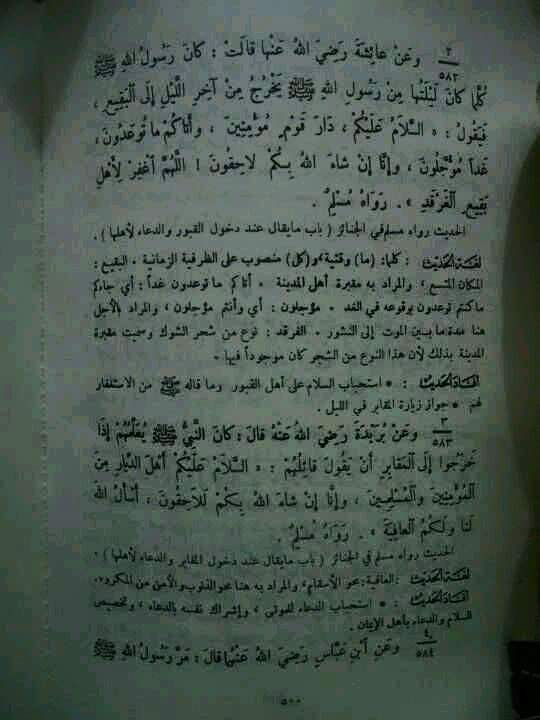 ٢
٥٨٢
وَعَنْ عَائِشَةَ رَضِيَ اللهُ عَنْهَا قَالَتْ : كَانَ رَسُولُ اللهِ ﷺ
كُلَّمَا كَانَ لَيْلَتُهَا مِنْ رَسُولِ اللهِ ﷺ يَخْرُجُ مِنْ آخِرِ اللَّيْلِ إِلَى الْبَقِيعِ ،
فَيَقُولُ : « السَّلَامُ عَلَيْكُمْ ، دَارَ قَوْمٍ مُؤْمِنِينَ ، وَأَتَاكُمْ مَا تُوعَدُونَ ،
غَدًا مُؤَجَّلُونَ ، وَإِنَّا إِنْ شَاءَ اللهُ بِكُمْ لَاحِقُونَ ! اللَّهُمَّ اغْفِرْ لِأَهْلِ
بَقِيعِ الْغَرْقَدِ » . رَوَاهُ مُسْلِمٌ .
الحديث رواه مسلم في الجنائز ( باب مايقال عند دخول القبور والدعاء لأهلها ) .
لغة الحديث : كلما: (ما) وقتية، و(كل) منصوب على الظرفية الزمانية . البقيع :
المكان المتسع ، والمراد به مقبرة أهل المدينة . أتاكم ما توعدون غداً : أي جاءكم
ما كنتم توعدون بوقوعه في الغد . مؤجلون : أي وأنتم مؤجلون ، والمراد بالأجل
هنا مدة ما بين الموت إلى النشور . الغرقد : نوع من شجر الشوك وسميت مقبرة
المدينة بذلك لأن هذا النوع من الشجر كان موجوداً فيها .
أفاد الحديث : * استحباب السلام على أهل القبور وما قاله ﷺ من الاستغفار
لهم * جواز زيارة المقابر في الليل .
٣
٥٨٣
وَعَنْ بُرَيْدَةَ رَضِيَ اللهُ عَنْهُ قَالَ : كَانَ النَّبِيُّ ﷺ يُعَلِّمُهُمْ إِذَا
خَرَجُوا إِلَى الْمَقَابِرِ أَنْ يَقُولَ قَائِلُهُمْ : « السَّلَامُ عَلَيْكُمْ أَهْلَ الدِّيَارِ مِنَ
الْمُؤْمِنِينَ وَالْمُسْلِمِينَ ، وَإِنَّا إِنْ شَاءَ اللهُ بِكُمْ لَلَاحِقُونَ ، أَسْأَلُ اللهَ
لَنَا وَلَكُمُ الْعَافِيَةَ » . رَوَاهُ مُسْلِمٌ .
الحديث رواه مسلم في الجنائز ( باب مايقال عند دخول المقابر والدعاء لأهلها ) .
لغة الحديث : العافية: محو الأسقام، والمراد به هنا محو الذنوب والأمن من المكروه.
أفاد الحديث : * استحباب الدعاء للموتى ، وإشراك نفسه بالدعاء ، وتخصيص
السلام والدعاء بأهل الإيمان .
٤
٥٨٤
وَعَنِ ابْنِ عَبَّاسٍ رَضِيَ اللهُ عَنْهُمَا قَالَ : مَرَّ رَسُولُ اللهِ ﷺ
٥٠٠